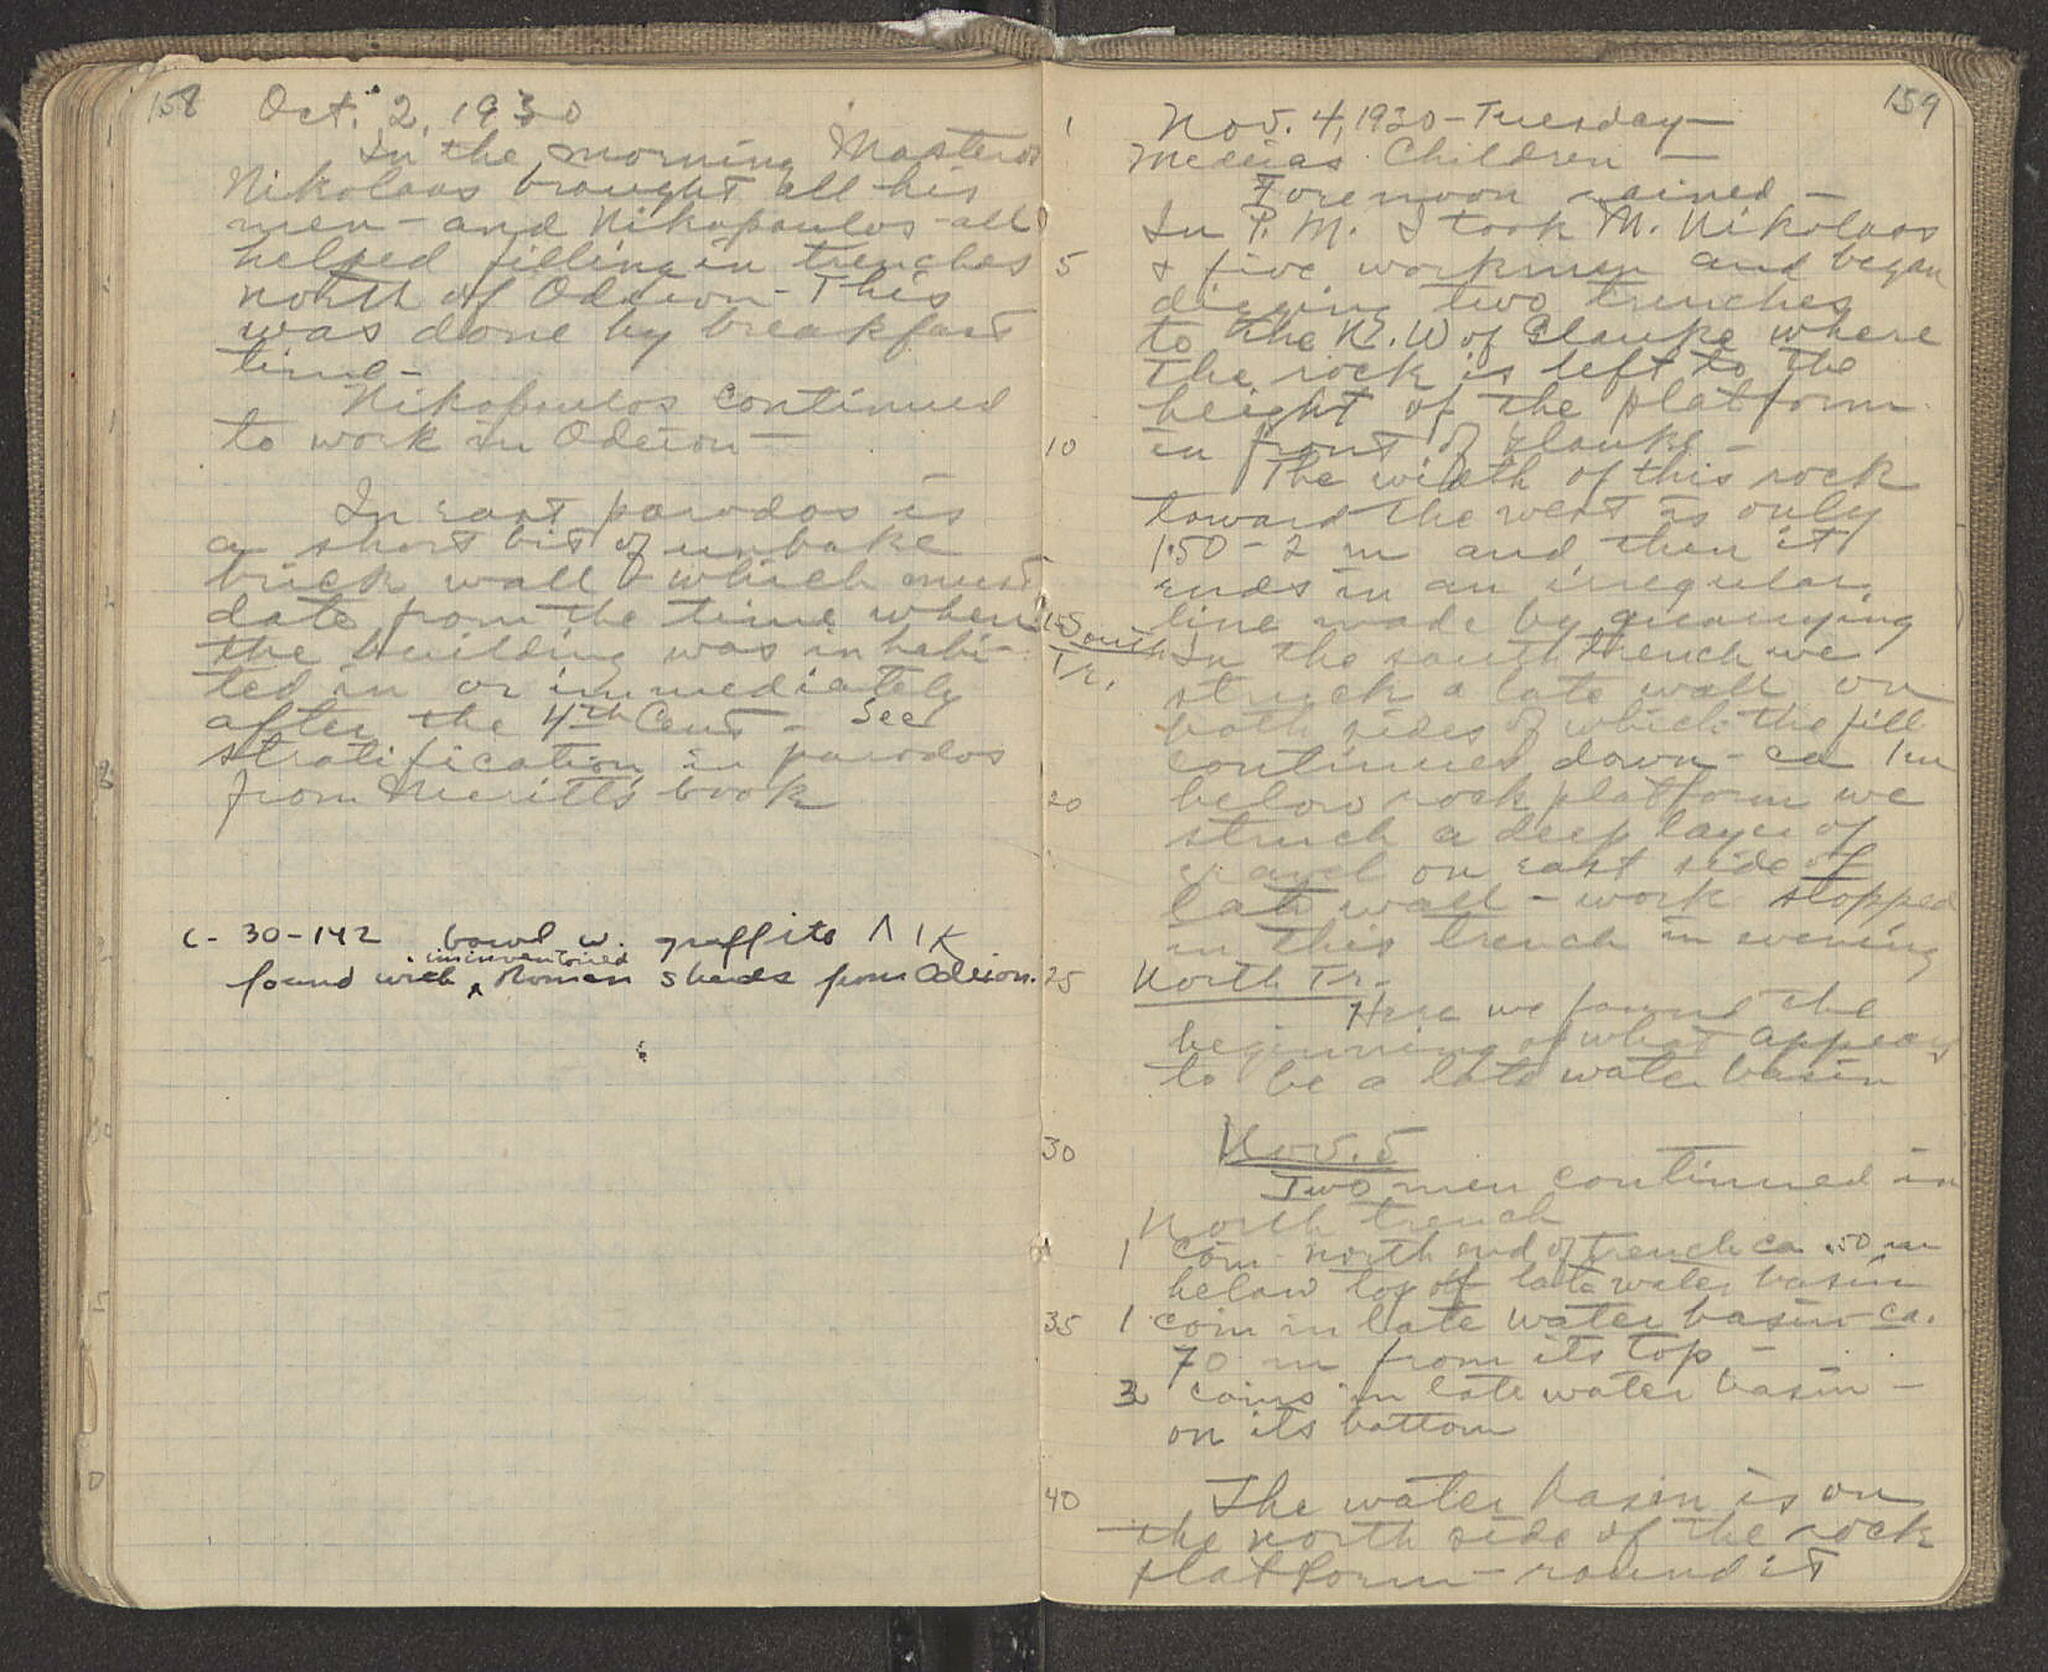 158
Oct. 2, 1930
In the morning Masteros
Nikolaos brought all his
men - and Nikopoulos - all
helped filling in trenches
north of Odeion - This
was done by breakfast
time -
Nikopoulos continued
to work in Odeion -
In east parodos is
a short bit of unbake
brick wall - which must
date from the time when
the building was inhabi-
ted in or immediately
after the 4th Cent - See
stratification in parodos
from Meritt's book
C-30-142 bowl w. graffito Λ I K
uninventoried
found with ^ Roman sherds from Odeion.
159
1 Nov. 4, 1930 - Tuesday -
Medeias Children -
Forenoon rained -
In P.M. I took M. Nikolaos
5 + five workmen and began
digging two trenches
to the N.W of Glauke where
the rock is left to the
height of the platform
10 in front of Glauke -
The width of this rock
toward the west is only
1.50 - 2 m and then it
ends in an irregular
15 line made by quarrying
South Tr. In the south trench we
struck a late wall on
both sides of which the fill
continues down - ca 1 m
20 below rock platform we
struck a deep layer of
gravel on east side of
late wall - work stopped
in this trench in evening
25 North Tr.
Here we found the
beginning of what appears
to be a late water basin
30 Nov. 5
Two men continued in
North trench
1 Coin - north end of trench ca .50 m
below top of late water basin
35 1 coin in late water basin - ca.
70 m from its top -
3 coins in late water basin -
on its bottom
40 The water basin is on
the north side of the rock
platform - round it